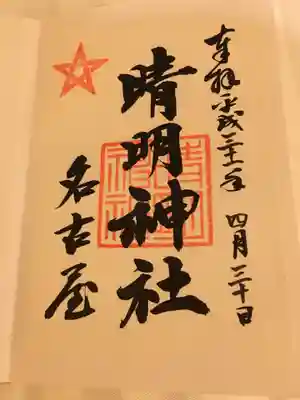 奉拝 平成三十一年 四月三十日
晴明神社
名古屋